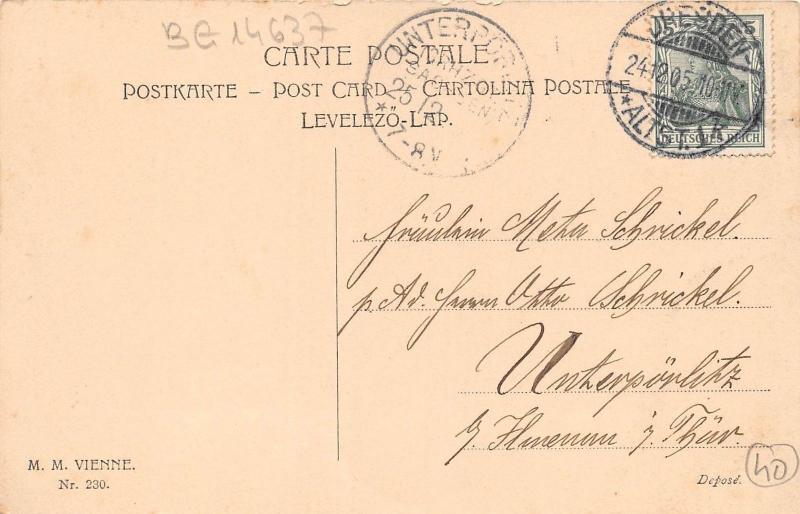 BG 14637
CARTE POSTALE
POSTKARTE – POST CARD – CARTOLINA POSTALE
LEVELEZŐ-LAP.
UNTERPÖR
25 12
7-8V
DRESDEN-
24.12.05. 10-11V
* ALTST. 1
DEUTSCHES REICH
5
Fräulein Meta Schrickel.
p. Ad. Herrn Otto Schrickel.
Unterpörlitz
b/ Ilmenau i. Thür.
M. M. VIENNE.
Nr. 230.
Deposé.
40